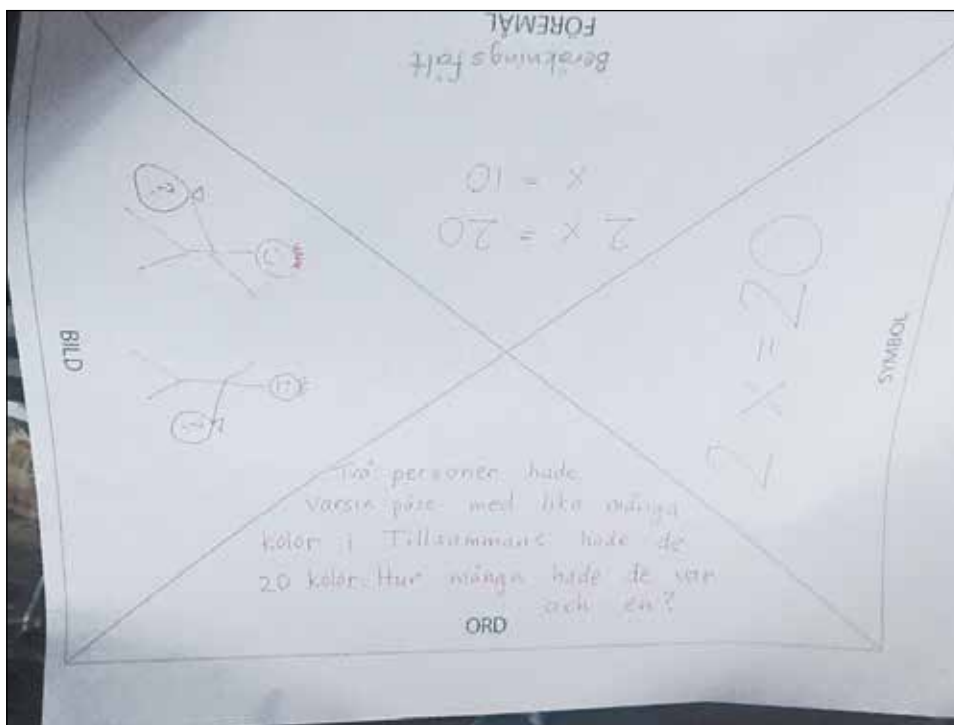 FÖREMÅL
Beräkningsfält
2 x = 20
x = 10
BILD
SYMBOL
2 x = 20
Två personer hade
varsin påse med lika många
kolor i Tillsammans hade de
20 kolor. Hur många hade de var
och en?
ORD